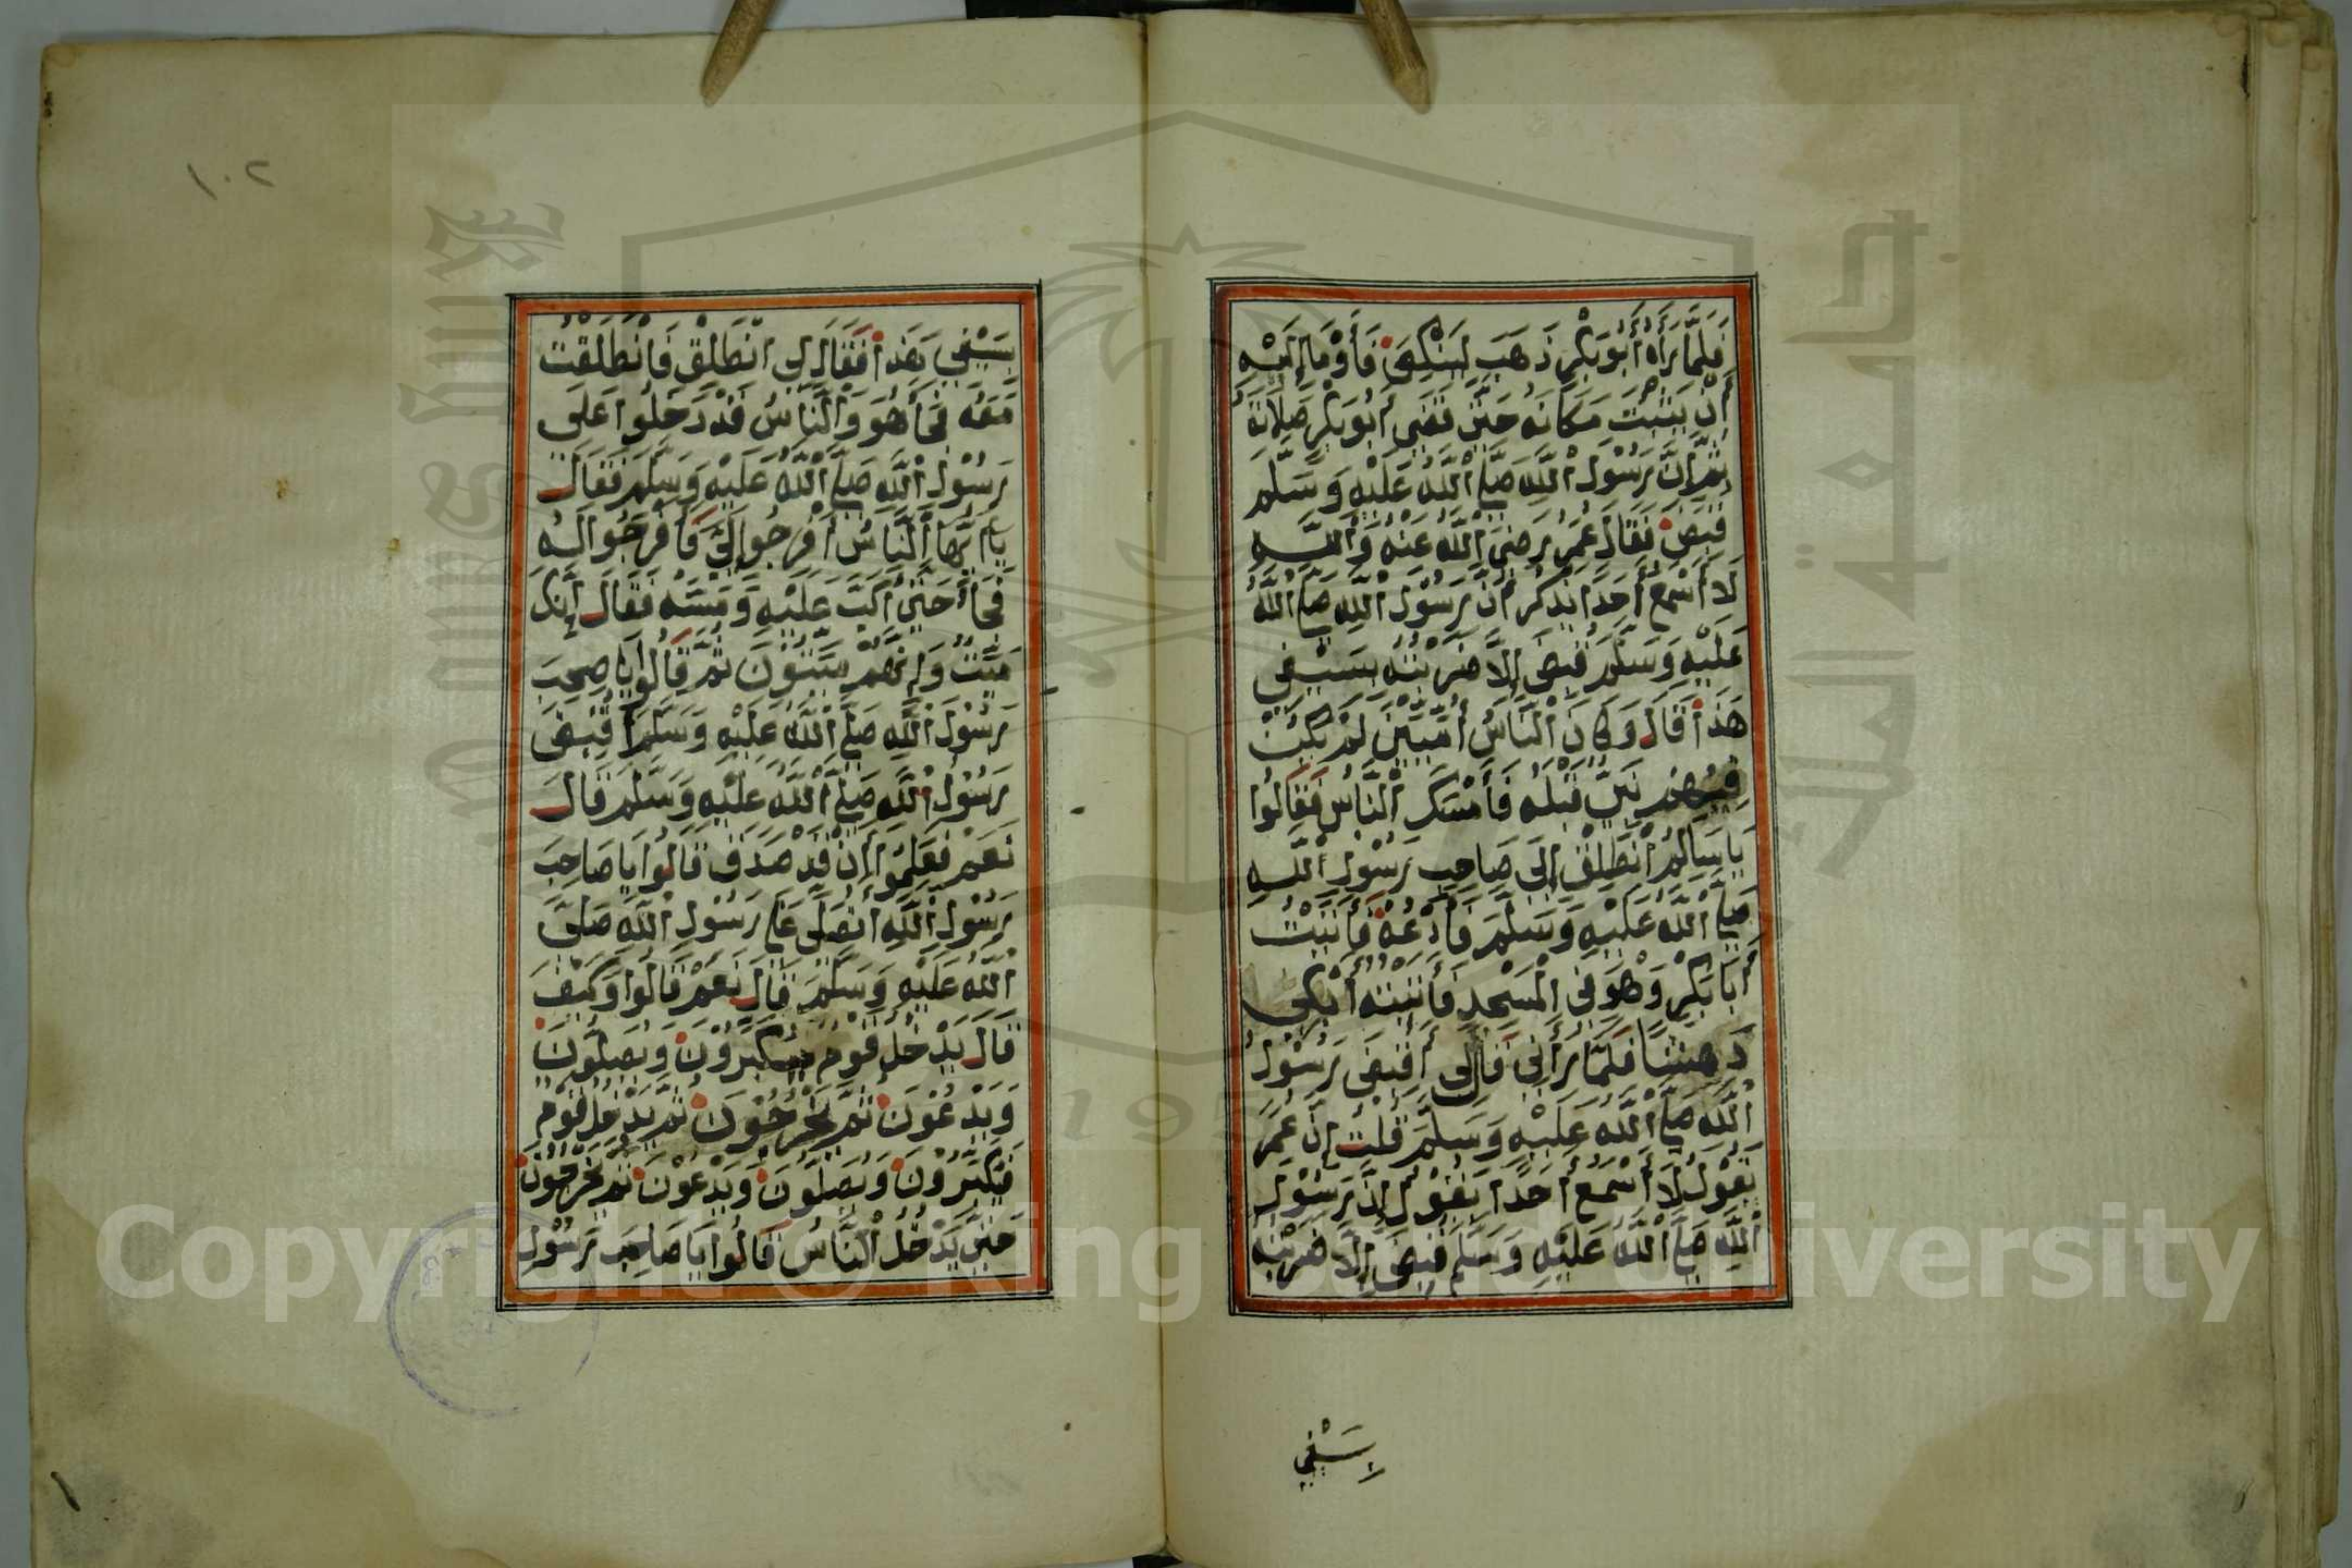 فَلَمَّا رَأَهُ أَبُو بَكْرٍ ذَهَبَ لِيَنْكِصَ فَأَوْمَا إِلَيْهِ
أَنْ يَثْبُتَ مَكَانَهُ حَتَّى قَضَى أَبُو بَكْرٍ صَلَاتَهُ
ثُمَّ إِنَّ رَسُوْلَ اللَّهِ صَلَّى اللَّهُ عَلَيْهِ وَسَلَّمَ
قُبِضَ فَقَالَ عُمَرُ رَضِىَ اللَّهُ عَنْهُ وَاللَّهِ
لَا أَسْمَعُ أَحَدًا يَذْكُرُ أَنَّ رَسُوْلَ اللَّهِ صَلَّى اللَّهُ
عَلَيْهِ وَسَلَّمَ قُبِضَ إِلَّا ضَرَبْتُهُ بِسَيْفِي
هَذَا قَالَ وَكَانَ النَّاسُ أُمِّيِّيْنَ لَمْ يَكُنْ
فِيْهِمْ نَبِيٌّ قَبْلَهُ فَأَمْسَكَ النَّاسُ فَقَالُوا
يَا سَالِمُ انْطَلِقْ إِلَى صَاحِبِ رَسُوْلِ اللَّهِ
صَلَّى اللَّهُ عَلَيْهِ وَسَلَّمَ فَادْعُهُ فَأَتَيْتُ
أَبَا بَكْرٍ وَهُوَ فِي الْمَسْجِدِ فَأَتَيْتُهُ أَبْكِي
دَهِشًا فَلَمَّا رَأَنِي قَالَ لِي أَقُبِضَ رَسُوْلُ
اللَّهِ صَلَّى اللَّهُ عَلَيْهِ وَسَلَّمَ قُلْتُ إِنَّ عُمَرَ
يَقُوْلُ لَا أَسْمَعُ أَحَدًا يَقُوْلُ إِنَّ رَسُوْلَ
اللَّهِ صَلَّى اللَّهُ عَلَيْهِ وَسَلَّمَ قُبِضَ إِلَّا ضَرَبْتُهُ
بِسَيْفِي
١٠٢
بِسَيْفِي هَذَا فَقَالَ لِي انْطَلِقْ فَانْطَلَقْتُ
مَعَهُ فَجَأَ هُوَ وَالنَّاسُ قَدْ دَخَلُوا عَلَى
رَسُوْلِ اللَّهِ صَلَّى اللَّهُ عَلَيْهِ وَسَلَّمَ فَقَالَ
يَا أَيُّهَا النَّاسُ أَفْرِجُوا لِيْ فَأَفْرَجُوا لَهُ
فَجَأَ حَتَّى أَكَبَّ عَلَيْهِ وَمَسَّهُ فَقَالَ إِنَّكَ
مَيِّتٌ وَإِنَّهُمْ مَيِّتُوْنَ ثُمَّ قَالُوا يَا صٰحِبَ
رَسُوْلِ اللَّهِ صَلَّى اللَّهُ عَلَيْهِ وَسَلَّمَ أَقُبِضَ
رَسُوْلُ اللَّهِ صَلَّى اللَّهُ عَلَيْهِ وَسَلَّمَ قَالَ
نَعَمْ فَعَلِمُوْا أَنْ قَدْ صَدَقَ قَالُوا يَا صَاحِبَ
رَسُوْلِ اللَّهِ أَتُصَلِّى عَلَى رَسُوْلِ اللَّهِ صَلَّى
اللَّهُ عَلَيْهِ وَسَلَّمَ قَالَ نَعَمْ قَالُوا وَكَيْفَ
قَالَ يَدْخُلُ قَوْمٌ فَيُكَبِّرُوْنَ وَيُصَلُّوْنَ
وَيَدْعُوْنَ ثُمَّ يَخْرُجُوْنَ ثُمَّ يَدْخُلُ قَوْمٌ
فَيُكَبِّرُوْنَ وَيُصَلُّوْنَ وَيَدْعُوْنَ ثُمَّ يَخْرُجُوْنَ
حَتَّى يَدْخُلَ النَّاسُ قَالُوا يَا صَاحِبَ رَسُوْلِ
Copyright © King Saud University